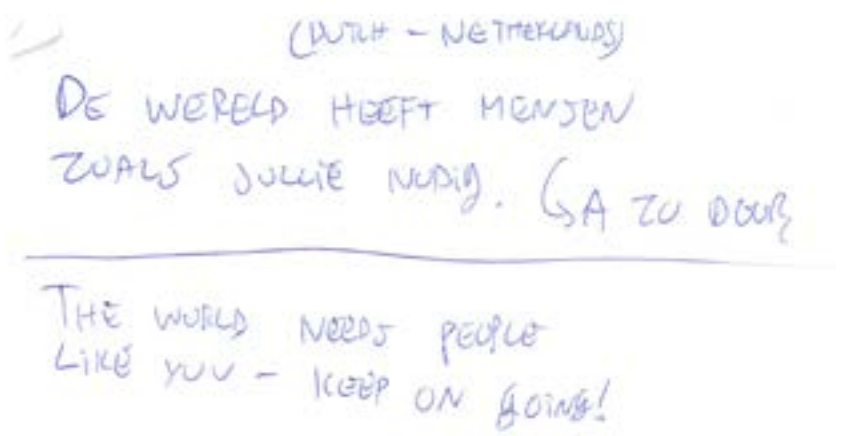 (DUTCH - NETHERLANDS)
DE WERELD HEEFT MENSEN
ZOALS JULLIE NODIG. GA ZO DOOR
THE WORLD NEEDS PEOPLE
LIKE YOU - KEEP ON GOING!